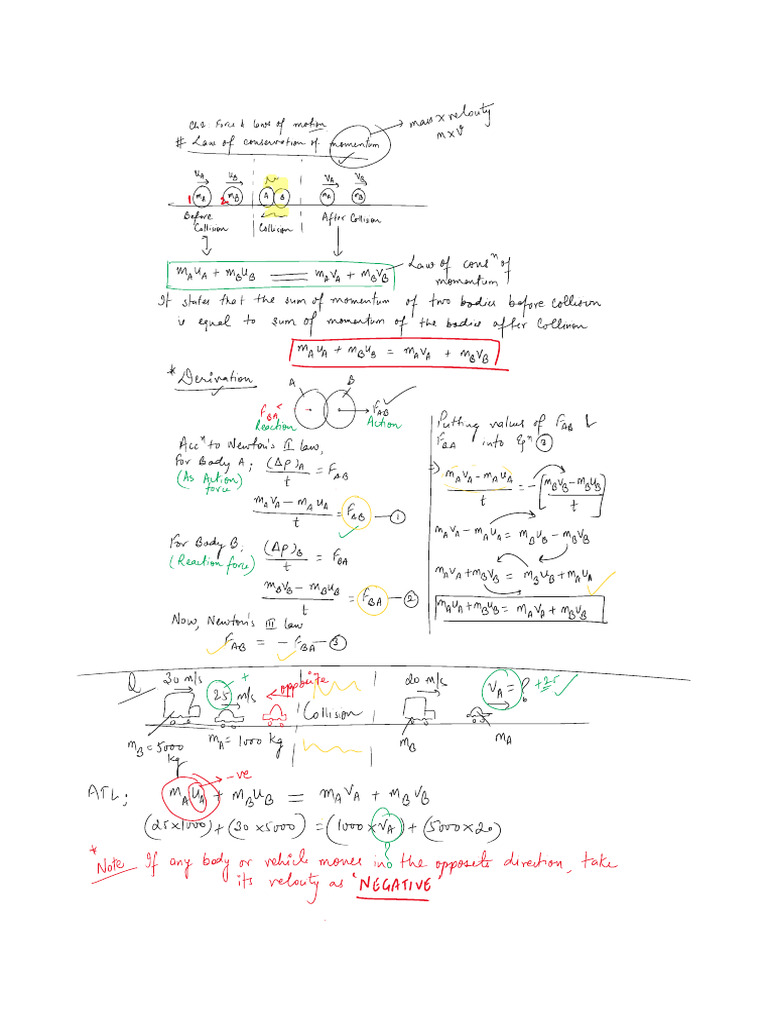 Ch2. Force & laws of motion.
# Law of conservation of momentum
mass x velocity
m x v
u_A u_B v_A v_B
1 m_A 2 m_B A B m_A m_B
Before Collision
Collision
After Collision
m_A u_A + m_B u_B = m_A v_A + m_B v_B
Law of consⁿ of momentum
It states that the sum of momentum of two bodies before collision
is equal to sum of momentum of the bodies after collision
m_A u_A + m_B u_B = m_A v_A + m_B v_B
* Derivation
A B
F_BA F_AB
Reaction Action
Accⁿ to Newton's II law,
For Body A; (Δp)_A / t = F_AB
(As Action) force
m_A v_A - m_A u_A / t = F_AB — ①
For Body B; (Δp)_B / t = F_BA
(Reaction force)
m_B v_B - m_B u_B / t = F_BA — ②
Now, Newton's III law
F_AB = - F_BA — ③
Putting values of F_AB &
F_BA into Eqⁿ ③
m_A v_A - m_A u_A / t = - [m_B v_B - m_B u_B / t]
m_A v_A - m_A u_A = m_B u_B - m_B v_B
m_A v_A + m_B v_B = m_B u_B + m_A u_A
m_A u_A + m_B u_B = m_A v_A + m_B v_B
Q 30 m/s 25 m/s + opposite 20 m/s v_A = ? +25
Collision
m_B = 5000 kg m_A = 1000 kg m_B m_A
-ve
ATL; m_A u_A + m_B u_B = m_A v_A + m_B v_B
(25x1000) + (30x5000) = (1000 x v_A) + (5000x20)
?
* Note If any body or vehicle moves in the opposite direction, take
its velocity as 'NEGATIVE